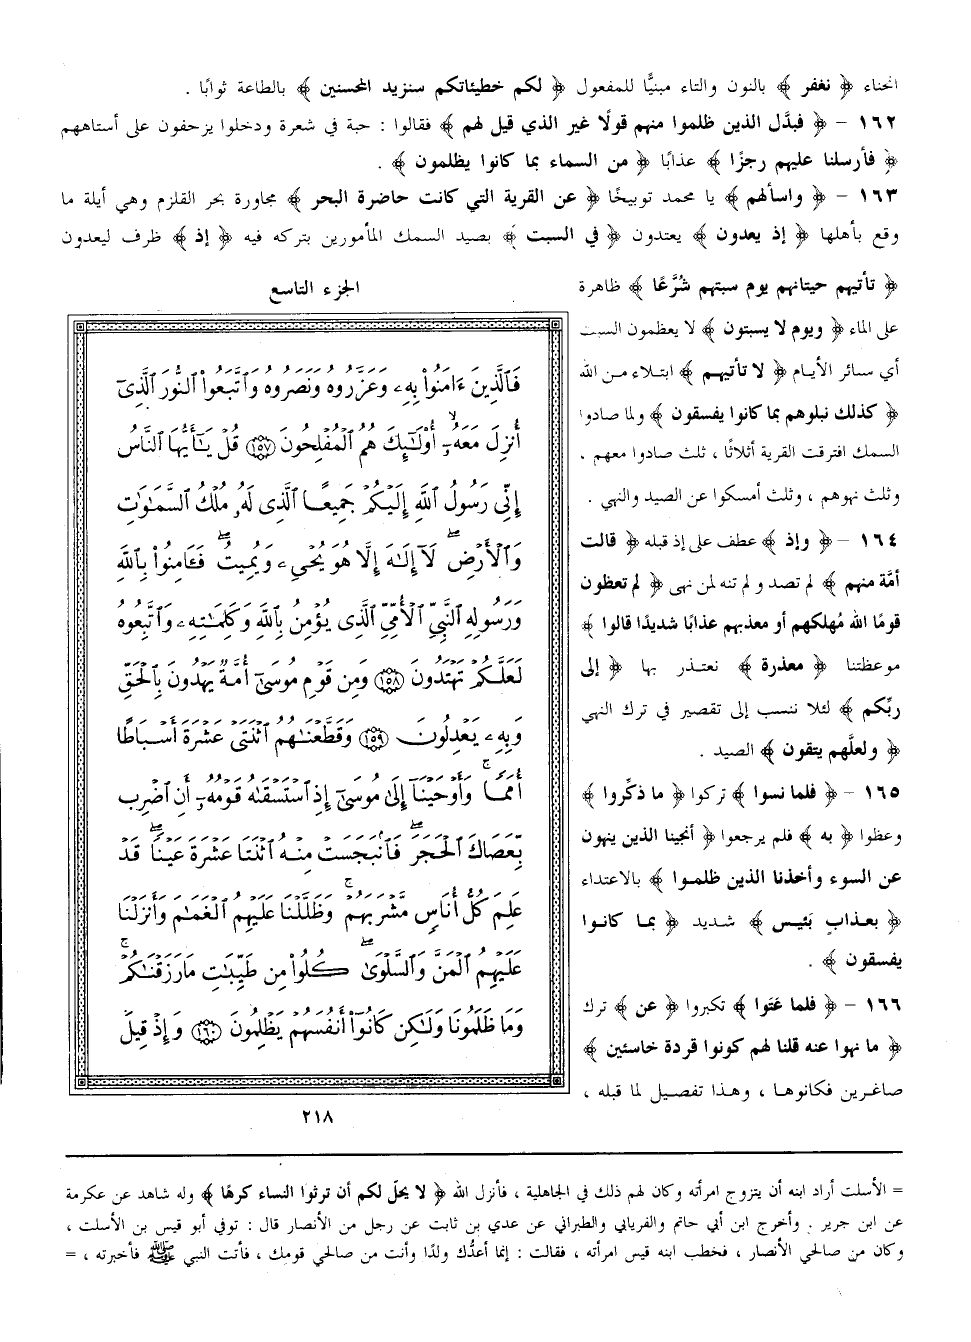 انحناء ﴿ نغفر ﴾ بالنون والتاء مبنيًّا للمفعول ﴿ لكم خطيئاتكم سنزيد المحسنين ﴾ بالطاعة ثوابًا .
١٦٢ – ﴿ فبدَّل الذين ظلموا منهم قولًا غير الذي قيل لهم ﴾ فقالوا : حبة في شعرة ودخلوا يزحفون على أستاههم
﴿ فأرسلنا عليهم رجزًا ﴾ عذابًا ﴿ من السماء بما كانوا يظلمون ﴾ .
١٦٣ – ﴿ واسألهم ﴾ يا محمد توبيخًا ﴿ عن القرية التي كانت حاضرة البحر ﴾ مجاورة بحر القلزم وهي أيلة ما
وقع بأهلها ﴿ إذ يعدون ﴾ يعتدون ﴿ في السبت ﴾ بصيد السمك المأمورين بتركه فيه ﴿ إذ ﴾ ظرف ليعدون
﴿ تأتيهم حيتانهم يوم سبتهم شُرَّعًا ﴾ ظاهرة
على الماء ﴿ ويوم لا يسبتون ﴾ لا يعظمون السبت
أي سائر الأيام ﴿ لا تأتيهم ﴾ ابتلاء من الله
﴿ كذلك نبلوهم بما كانوا يفسقون ﴾ ولما صادوا
السمك افترقت القرية أثلاثًا ، ثلث صادوا معهم ،
وثلث نهوهم ، وثلث أمسكوا عن الصيد والنهي .
١٦٤ – ﴿ وإذ ﴾ عطف على إذ قبله ﴿ قالت
أمَّة منهم ﴾ لم تصد ولم تنه لمن نهى ﴿ لم تعظون
قومًا الله مُهلكهم أو معذبهم عذابًا شديدًا قالوا ﴾
موعظتنا ﴿ معذرة ﴾ نعتذر بها ﴿ إلى
ربِّكم ﴾ لئلا ننسب إلى تقصير في ترك النهي
﴿ ولعلَّهم يتقون ﴾ الصيد .
١٦٥ – ﴿ فلما نسوا ﴾ تركوا ﴿ ما ذكِّروا ﴾
وعظوا ﴿ به ﴾ فلم يرجعوا ﴿ أنجينا الذين ينهون
عن السوء وأخذنا الذين ظلموا ﴾ بالاعتداء
﴿ بعذاب بَئيس ﴾ شديد ﴿ بما كانوا
يفسقون ﴾ .
١٦٦ – ﴿ فلما عَتَوا ﴾ تكبروا ﴿ عن ﴾ ترك
﴿ ما نهوا عنه قلنا لهم كونوا قردة خاسئين ﴾
صاغرين فكانوها ، وهذا تفصيل لما قبله ،
الجزء التاسع
فَٱلَّذِينَ ءَامَنُوا۟ بِهِۦ وَعَزَّرُوهُ وَنَصَرُوهُ وَٱتَّبَعُوا۟ ٱلنُّورَ ٱلَّذِىٓ
أُنزِلَ مَعَهُۥٓ ۙ أُو۟لَـٰٓئِكَ هُمُ ٱلْمُفْلِحُونَ ۝١٥٧ قُلْ يَـٰٓأَيُّهَا ٱلنَّاسُ
إِنِّى رَسُولُ ٱللَّهِ إِلَيْكُمْ جَمِيعًا ٱلَّذِى لَهُۥ مُلْكُ ٱلسَّمَـٰوَٰتِ
وَٱلْأَرْضِ ۖ لَآ إِلَـٰهَ إِلَّا هُوَ يُحْىِۦ وَيُمِيتُ ۖ فَـَٔامِنُوا۟ بِٱللَّهِ
وَرَسُولِهِ ٱلنَّبِىِّ ٱلْأُمِّىِّ ٱلَّذِى يُؤْمِنُ بِٱللَّهِ وَكَلِمَـٰتِهِۦ وَٱتَّبِعُوهُ
لَعَلَّكُمْ تَهْتَدُونَ ۝١٥٨ وَمِن قَوْمِ مُوسَىٰٓ أُمَّةٌ يَهْدُونَ بِٱلْحَقِّ
وَبِهِۦ يَعْدِلُونَ ۝١٥٩ وَقَطَّعْنَـٰهُمُ ٱثْنَتَىْ عَشْرَةَ أَسْبَاطًا
أُمَمًا ۚ وَأَوْحَيْنَآ إِلَىٰ مُوسَىٰٓ إِذِ ٱسْتَسْقَىٰهُ قَوْمُهُۥٓ أَنِ ٱضْرِب
بِّعَصَاكَ ٱلْحَجَرَ ۖ فَٱنۢبَجَسَتْ مِنْهُ ٱثْنَتَا عَشْرَةَ عَيْنًا ۖ قَدْ
عَلِمَ كُلُّ أُنَاسٍ مَّشْرَبَهُمْ ۚ وَظَلَّلْنَا عَلَيْهِمُ ٱلْغَمَـٰمَ وَأَنزَلْنَا
عَلَيْهِمُ ٱلْمَنَّ وَٱلسَّلْوَىٰ ۖ كُلُوا۟ مِن طَيِّبَـٰتِ مَا رَزَقْنَـٰكُمْ ۚ
وَمَا ظَلَمُونَا وَلَـٰكِن كَانُوٓا۟ أَنفُسَهُمْ يَظْلِمُونَ ۝١٦٠ وَإِذْ قِيلَ
٢١٨
= الأسلت أراد ابنه أن يتزوج امرأته وكان لهم ذلك في الجاهلية ، فأنزل الله ﴿ لا يحلّ لكم أن ترثوا النساء كرهًا ﴾ وله شاهد عن عكرمة
عن ابن جرير . وأخرج ابن أبي حاتم والفريابي والطبراني عن عدي بن ثابت عن رجل من الأنصار قال : توفي أبو قيس بن الأسلت ،
وكان من صالحي الأنصار ، فخطب ابنه قيس امرأته ، فقالت : إنما أعدُّك ولدًا وأنت من صالحي قومك ، فأتت النبي ﷺ فأخبرته ، =